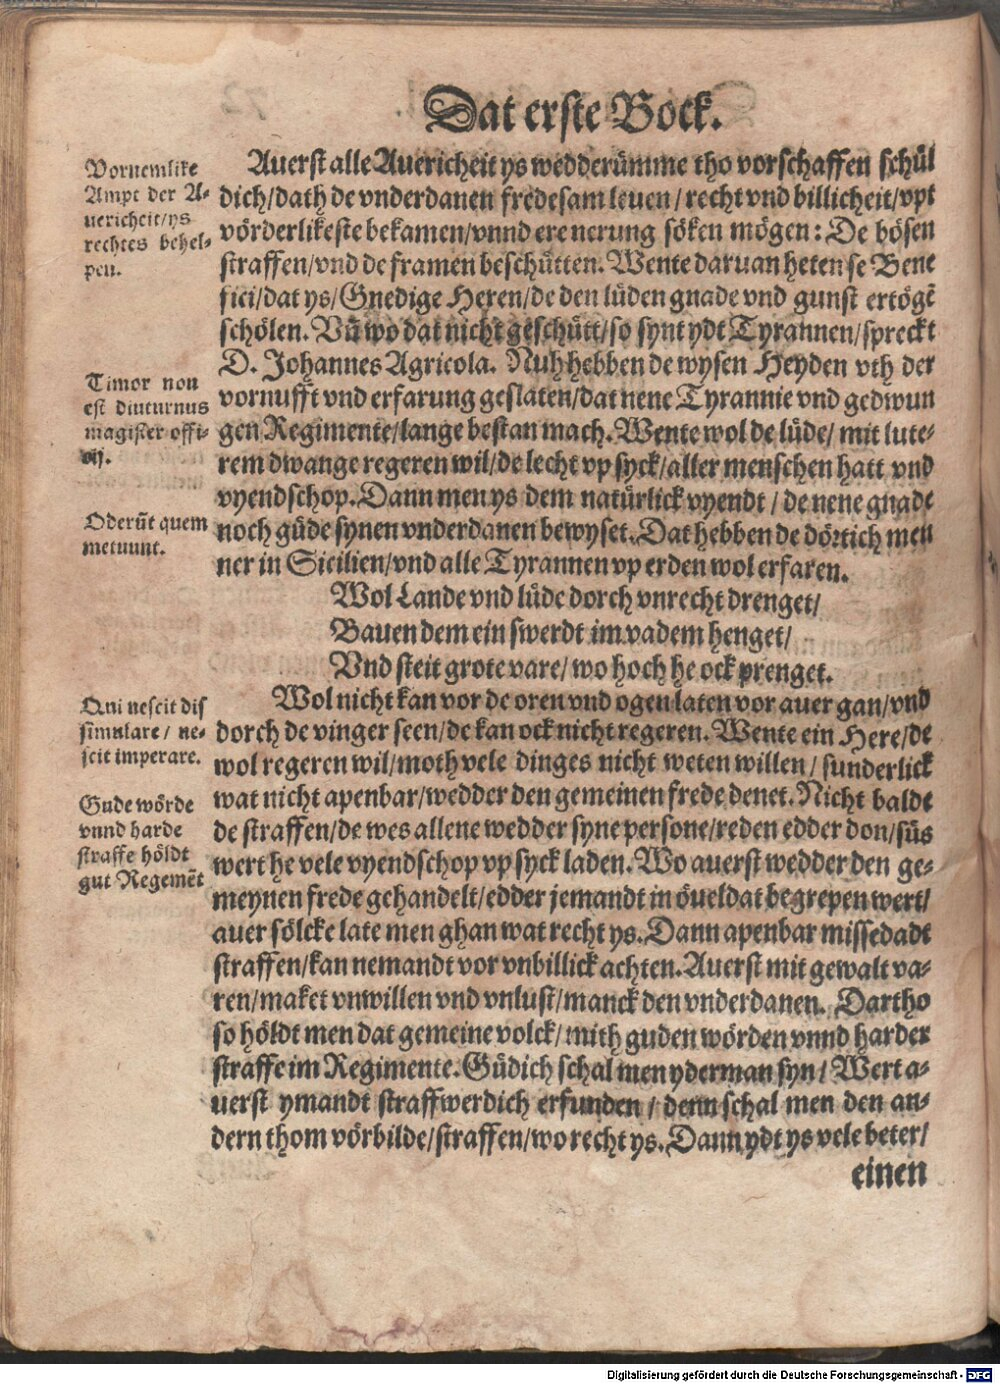 Dat erste Bock.
Vornemlike
Ampt der A-
uericheit/ys
rechtes behel-
pen.
Auerst alle Auericheit ys wedderümme tho vorschaffen schül
dich/dath de vnderdanen fredesam leuen/recht vnd billicheit/vpt
vörderlikeste bekamen/vnnd ere nerung söken mögen: De bösen
straffen/vnd de framen beschütten. Wente daruan heten se Bene
fici/dat ys/Gnedige Heren/de den lüden gnade vnd gunst ertögē
schölen. Vū wo dat nicht geschütt/so synt ydt Tyrannen/spreckt
D. Johannes Agricola. Nuh hebben de wysen Heyden vth der
Timor non
est diuturnus
magister offi-
cij.
vornufft vnd erfarung geslaten/dat nene Tyrannie vnd gedwun
gen Regimente/lange bestan mach. Wente wol de lüde/mit lute-
rem dwange regeren wil/de lecht vp syck/aller menschen hatt vnd
vyendschop. Dann men ys dem natürlick vyendt/de nene gnade
Oderūt quem
metuunt.
noch güde synen vnderdanen bewyset. Dat hebben de dörtich men
ner in Sicilien/vnd alle Tyrannen vp erden wol erfaren.
Wol Lande vnd lüde dorch vnrecht drenget/
Bauen dem ein swerdt im vadem henget/
Vnd steit grote vare/wo hoch he ock prenget.
Qui nescit dis
simulare/ne-
scit imperare.
Wol nicht kan vor de oren vnd ogen laten vor auer gan/vnd
dorch de vinger seen/de kan ock nicht regeren. Wente ein Here/de
wol regeren wil/moth vele dinges nicht weten willen/sunderlick
Gude wörde
vnnd harde
straffe höldt
gut Regemēt
wat nicht apenbar/wedder den gemeinen frede denet. Nicht balde
de straffen/de wes allene wedder syne persone/reden edder don/süs
wert he vele vyendschop vp syck laden. Wo auerst wedder den ge-
meynen frede gehandelt/edder jemandt in öueldat begrepen wert/
auer sölcke late men ghan wat recht ys. Dann apenbar missedadt
straffen/kan nemandt vor vnbillick achten. Auerst mit gewalt va-
ren/maket vnwillen vnd vnlust/manck den vnderdanen. Dartho
so höldt men dat gemeine volck/mith guden wörden vnnd harder
straffe im Regimente. Güdich schal men yderman syn/Wert a-
uerst ymandt straffwerdich erfunden/denn schal men den an-
dern thom vörbilde/straffen/wo recht ys. Dann ydt ys vele beter/
einen
Digitalisierung gefördert durch die Deutsche Forschungsgemeinschaft - DFG